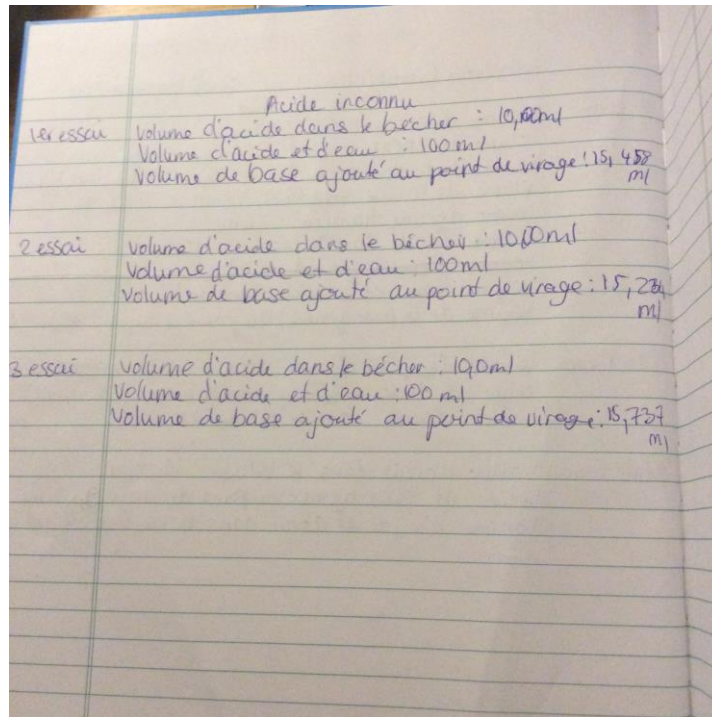 Acide inconnu
1er essai volume d'acide dans le bécher : 10,00ml
Volume d'acide et d'eau : 100ml
Volume de base ajouté au point de virage : 15,458
ml
2 essai volume d'acide dans le bécher : 10,00ml
Volume d'acide et d'eau : 100ml
Volume de base ajouté au point de virage : 15,234
ml
3 essai volume d'acide dans le bécher : 10,0ml
Volume d'acide et d'eau : 100 ml
Volume de base ajouté au point de virage : 15,737
ml